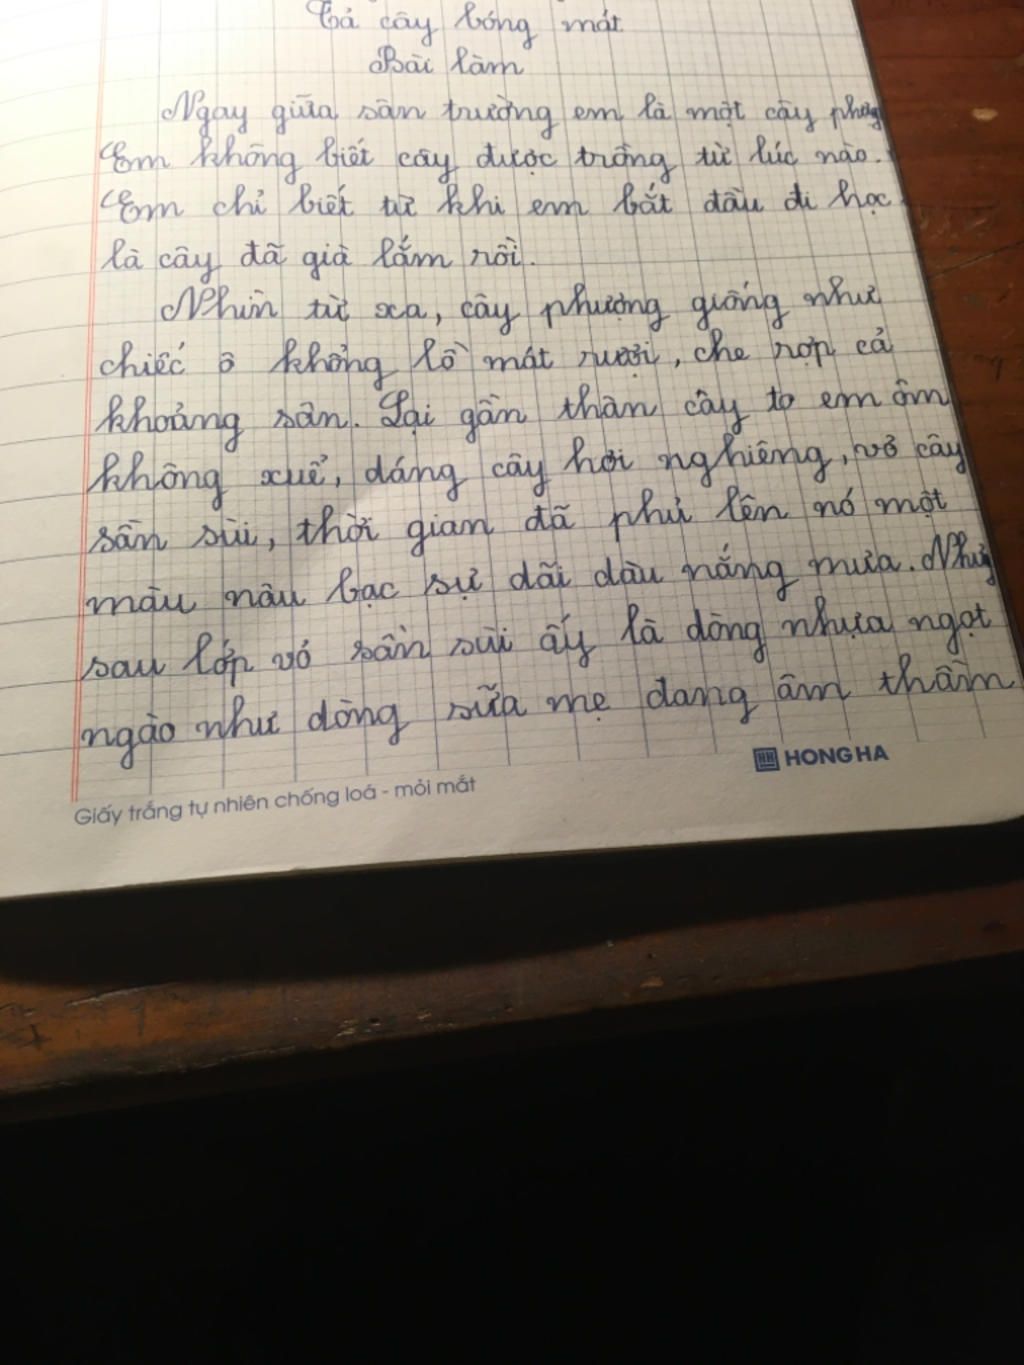 Tả cây bóng mát
Bài làm
Ngay giữa sân trường em là một cây
Em không biết cây được trồng từ lúc nào.
Em chỉ biết từ khi em bắt đầu đi học
là cây đã già lắm rồi.
Nhìn từ xa, cây phượng giống như
chiếc ô khổng lồ mát rượi, che rợp cả
khoảng sân. Lại gần thân cây to em ôm
không xuể, dáng cây hơi nghiêng, vỏ cây
sần sùi, thời gian đã phủ lên nó một
màu nâu bạc sự dãi dầu nắng mưa. Nhưng
sau lớp vỏ sần sùi ấy là dòng nhựa ngọt
ngào như dòng sữa mẹ đang âm thầm
HONG HA
Giấy trắng tự nhiên chống loá - mỏi mắt